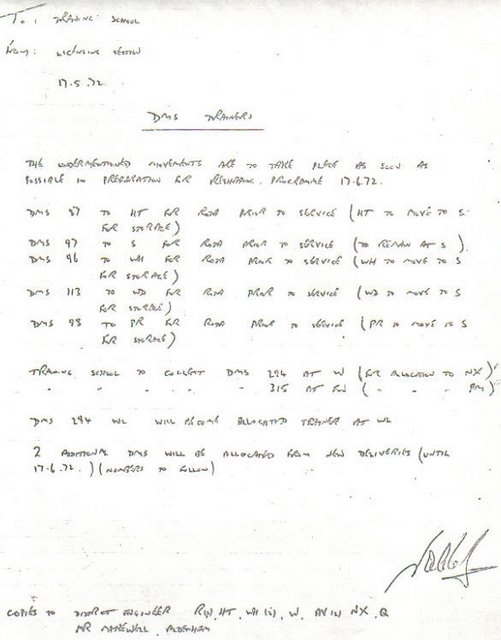 To: TRAINING SCHOOL
From: LICENSING SECTION
17.5.72.
DMS TRAINERS
THE UNDERMENTIONED MOVEMENTS ARE TO TAKE PLACE AS SOON AS
POSSIBLE IN PREPARATION FOR RESHAPING PROGRAMME 17.6.72.
DMS 87 TO HT FOR ROTA PRIOR TO SERVICE (HT TO MOVE TO S
FOR STORAGE)
DMS 97 TO S FOR ROTA PRIOR TO SERVICE (TO REMAIN AT S).
DMS 96 TO WH FOR ROTA PRIOR TO SERVICE (WH TO MOVE TO S
FOR STORAGE)
DMS 113 TO WD FOR ROTA PRIOR TO SERVICE (WD TO MOVE TO S
FOR STORAGE)
DMS 98 TO PR FOR ROTA PRIOR TO SERVICE (PR TO MOVE TO S
FOR STORAGE)
TRAINING SCHOOL TO COLLECT DMS 294 AT W (FOR ALLOCATION TO NX)
" " " " " 315 AT FW ( " " " PM)
DMS 294 WL WILL BECOME ALLOCATED TRAINER AT WL
2 ADDITIONAL DMS WILL BE ALLOCATED FROM NEW DELIVERIES (UNTIL
17.6.72.) (NUMBERS TO FOLLOW)
COPIES TO DISTRICT ENGINEER R(2), HT, WH(2), W, AV(2) NX, Q
MR ALDENHAM